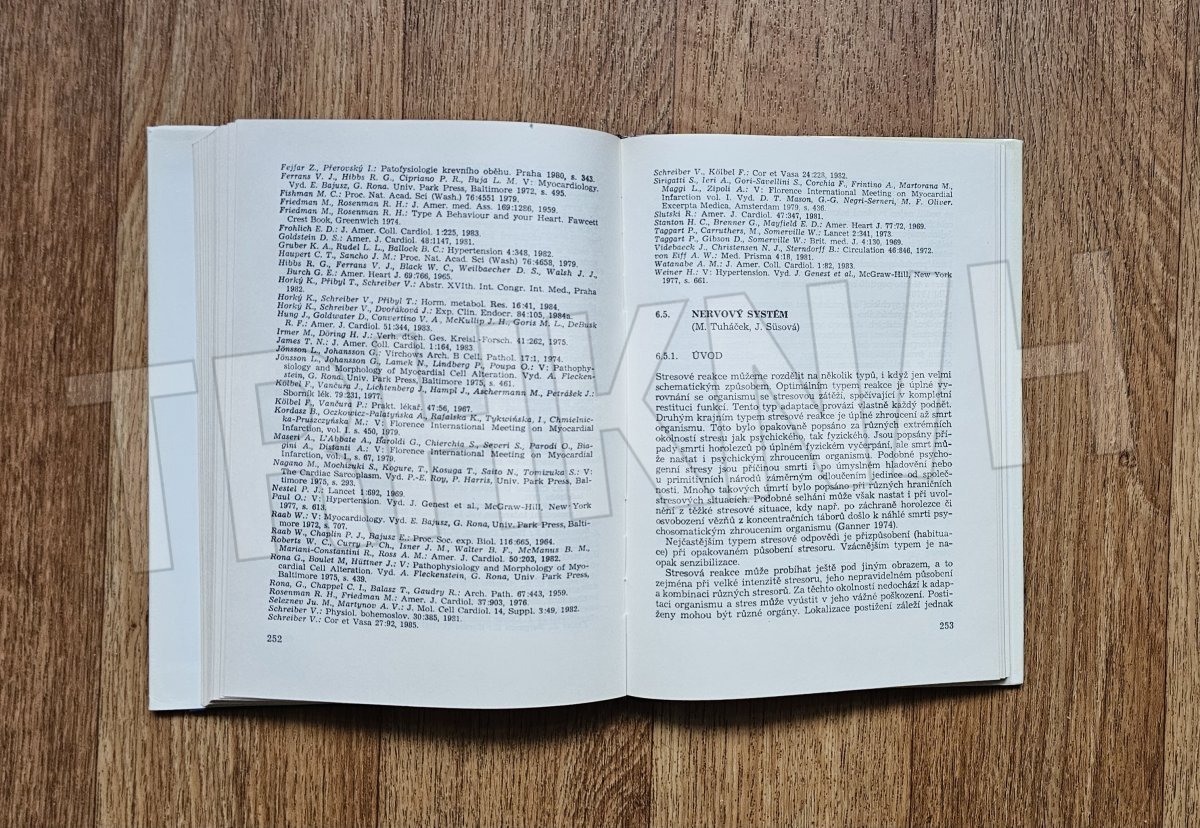 Fejfar Z., Přerovský I.: Patofysiologie krevního oběhu. Praha 1980, s. 343.
Ferrans V. J., Hibbs R. G., Cipriano P. R., Buja L. M. V: Myocardiology.
Vyd. E. Bajusz, G. Rona. Univ. Park Press, Baltimore 1972, s. 495.
Fishman M. C.: Proc. Nat. Acad. Sci (Wash.) 76:4551 1979.
Friedman M., Rosenman R. H.: J. Amer. med. Ass. 169:1286, 1959.
Friedman M., Rosenman R. H.: Type A Behaviour and your Heart. Fawcett
Crest Book, Greenwich 1974.
Frohlich E. D.: J. Amer. Coll. Cardiol. 1:225, 1983.
Goldstein D. S.: Amer. J. Cardiol. 48:1147, 1981.
Gruber K. A., Rudel L. L., Ballock B. C.: Hypertension 4:348, 1982.
Haupert C. T., Sancho J. M.: Proc. Nat. Acad. Sci (Wash) 76:4658, 1979.
Hibbs R. G., Ferrans V. J., Black W. C., Weilbaecher D. S., Walsh J. J.,
Burch G. E.: Amer. Heart J. 69:766, 1965.
Horký K., Přibyl T., Schreiber V.: Abstr. XVIth. Int. Congr. Int. Med., Praha
1982.
Horký K., Schreiber V., Přibyl T.: Horm. metabol. Res. 16:41, 1984.
Horký K., Schreiber V., Dvořáková J.: Exp. Clin. Endocr. 84:105, 1984a.
Hung J., Goldwater D., Convertino V. A., McKullip J. H., Goris M. L., DeBusk
R. F.: Amer. J. Cardiol. 51:344, 1983.
Irmer M., Döring H. J.: Verh. dtsch. Ges. Kreisl.-Forsch. 41:262, 1975.
James T. N.: J. Amer. Coll. Cardiol. 1:164, 1983.
Jönsson L., Johansson G.: Virchows Arch. B Cell. Pathol. 17:1, 1974.
Jönsson L., Johansson G., Lamek N., Lindberg P., Poupa O.: V: Pathophy-
siology and Morphology of Myocardial Cell Alteration. Vyd. A. Flecken-
stein, G. Rona. Univ. Park Press, Baltimore 1975, s. 461.
Kölbel F., Vančura J., Lichtenberg J., Hampl J., Aschermann M., Petrášek J.:
Sborník lék. 79:231, 1977.
Kölbel F., Vančura P.: Prakt. lékař. 47:56, 1967.
Kordasz B., Oczkowicz-Palatyńska A., Rafalska K., Tykwińska, I., Chmielnic-
ka-Pruszczyńska M.: V: Florence International Meeting on Myocardial
Infarction, vol. I. s. 450, 1979.
Maseri A., L'Abbate A., Haroldi G., Chierchia S., Severi S., Parodi O., Bia-
gini A., Distanti A.: V: Florence International Meeting on Myocardial
Infarction, vol. I., s. 67, 1979.
Nagano M., Mochizuki S., Kogure, T., Kosuga T., Saito N., Tomizuka S.: V:
The Cardiac Sarcoplasm. Vyd. P.-E. Roy, P. Harris, Univ. Park Press, Bal-
timore 1975, s. 293.
Nestel P. J.: Lancet 1:692, 1969.
Paul O.: V: Hypertension. Vyd. J. Genest et al., McGraw-Hill, New York
1977, s. 613.
Raab W.: V: Myocardiology. Vyd. E. Bajusz, G. Rona, Univ. Park Press, Balti-
more 1972, s. 707.
Raab W., Chaplin P. J., Bajusz E.: Proc. Soc. exp. Biol. 116:665, 1964.
Roberts W. C., Curry P. Ch., Isner J. M., Walter B. F., McManus B. M.,
Mariani-Constantini R., Ross A. M.: Amer. J. Cardiol. 50:203, 1982.
Rona G., Boulet M, Hüttner J.: V: Pathophysiology and Morphology of Myo-
cardial Cell Alteration. Vyd. A. Fleckenstein, G. Rona, Univ. Park Press,
Baltimore 1975, s. 439.
Rona, G., Chappel C. I., Balasz T., Gaudry R.: Arch. Path. 67:443, 1959.
Rosenman R. H., Friedman M.: Amer. J. Cardiol. 37:903, 1976.
Seleznev Ju. M., Martynov A. V.: J. Mol. Cell Cardiol. 14, Suppl. 3:49, 1982.
Schreiber V.: Physiol. bohemoslov. 30:385, 1981.
Schreiber V.: Cor et Vasa 27:92, 1985.
252
Schreiber V., Kölbel F.: Cor et Vasa 24:223, 1982.
Sirigatti S., Ieri A., Gori-Savellini S., Corchia F., Frintino A., Martorana M.,
Maggi L., Zipoli A.: V: Florence International Meeting on Myocardial
Infarction vol. I. Vyd. D. T. Mason, G.-G. Negri-Serneri, M. F. Oliver.
Excerpta Medica, Amsterdam 1979, s. 436.
Slutski R.: Amer. J. Cardiol. 47:347, 1981.
Stanton H. C., Brenner G., Mayfield E. D.: Amer. Heart J. 77:72, 1969.
Taggart P., Carruthers, M., Somerville W.: Lancet 2:341, 1973.
Taggart P., Gibson D., Somerville W.: Brit. med. J. 4:130, 1969.
Videbaeck J., Christensen N. J., Sterndorff B.: Circulation 46:846, 1972.
von Eiff A. W.: Med. Prisma 4:18, 1981.
Watanabe A. M.: J. Amer. Coll. Cardiol. 1:82, 1983.
Weiner H.: V: Hypertension. Vyd. J. Genest et al., McGraw-Hill, New York
1977, s. 661.
6.5. NERVOVÝ SYSTÉM
(M. Tuháček, J. Süsová)
6.5.1. ÚVOD
Stresové reakce můžeme rozdělit na několik typů, i když jen velmi
schematickým způsobem. Optimálním typem reakce je úplné vy-
rovnání se organismu se stresovou zátěží, spočívající v kompletní
restituci funkcí. Tento typ adaptace provází vlastně každý podnět.
Druhým krajním typem stresové reakce je úplné zhroucení až smrt
organismu. Toto bylo opakovaně popsáno za různých extrémních
okolností stresu jak psychického, tak fyzického. Jsou popsány pří-
pady smrti horolezců po úplném fyzickém vyčerpání, ale smrt mů-
že nastat i psychickým zhroucením organismu. Podobné psycho-
genní stresy jsou příčinou smrti i po úmyslném hladovění nebo
u primitivních národů záměrným odloučením jedince od společ-
nosti. Mnoho takových úmrtí bylo popsáno při různých hraničních
stresových situacích. Podobné selhání může však nastat i při uvol-
nění z těžké stresové situace, kdy např. po záchraně horolezce či
osvobození vězňů z koncentračních táborů došlo k náhlé smrti psy-
chosomatickým zhroucením organismu (Ganner 1974).
Nejčastějším typem stresové odpovědi je přizpůsobení (habitua-
ce) při opakovaném působení stresoru. Vzácnějším typem je na-
opak senzibilizace.
Stresová reakce může probíhat ještě pod jiným obrazem, a to
zejména při velké intenzitě stresoru, jeho nepravidelném působení
a kombinaci různých stresorů. Za těchto okolností nedochází k adap-
taci organismu a stres může vyústit v jeho vážné poškození. Posti-
ženy mohou být různé orgány. Lokalizace postižení záleží jednak
253